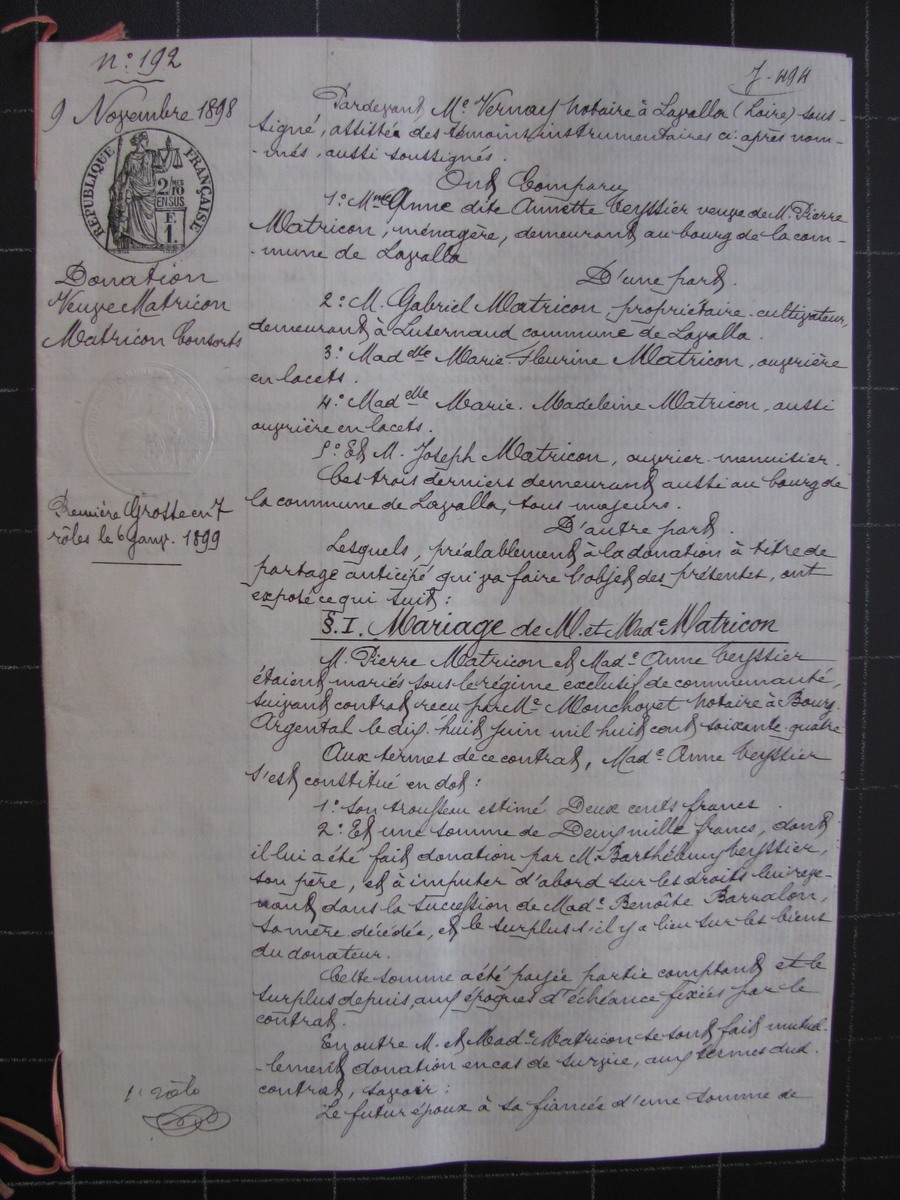 n: 192
9 Novembre 1898
RÉPUBLIQUE FRANÇAISE
2/10 EN SUS
F. 1.
Donation
Veuve Matricon
Matricon Consorts
Première Grosse en 7
rôles le 6 janv. 1899
Pardevant Me Vernay Notaire à Lavalla (Loire) sous-
signé, assisté des témoins instrumentaires ci-après nom-
-més, aussi soussignés.
Ont Comparu
1º Mme Anne dite Annette Teyssier veuve de M. Pierre
Matricon, ménagère, demeurant au bourg de la com-
-mune de Lavalla
D'une part.
2º M. Gabriel Matricon propriétaire-cultivateur,
demeurant à Luzernaud commune de Lavalla.
3º Madelle Marie-Fleurine Matricon, ouvrière
en lacets.
4º Madelle Marie-Madeleine Matricon, aussi
ouvrière en lacets.
5º Et M. Joseph Matricon, ouvrier-menuisier.
Ces trois derniers demeurant aussi au bourg de
la commune de Lavalla, tous majeurs.
D'autre part.
Lesquels, préalablement à la donation à titre de
partage anticipé qui va faire l'objet des présentes, ont
exposé ce qui suit:
§. I. Mariage de M. et Made Matricon
M. Pierre Matricon et Made Anne Teyssier
étaient mariés sous le régime exclusif de communauté,
suivant contrat reçu par Me Monchovet Notaire à Bourg-
Argental le dix-huit juin mil huit cent soixante-quatre
Aux termes de ce contrat, Made Anne Teyssier
s'est constitué en dot:
1º Son trousseau estimé Deux cents francs.
2º Et une somme de Deux mille francs, dont
il lui a été fait donation par M. Barthélemy Teyssier,
son père, et à imputer d'abord sur les droits lui reve-
nant dans la succession de Made Benoîte Barralon,
sa mère décédée, et le surplus s'il y a lieu sur les biens
du donateur.
Cette somme a été payée partie comptant et le
surplus depuis, aux époques d'échéance fixées par le
contrat.
En outre M. et Made Matricon se sont fait mutuel-
-lement donation en cas de survie, aux termes dud.
contrat, savoir:
Le futur époux à sa fiancée d'une somme de
1er rôle